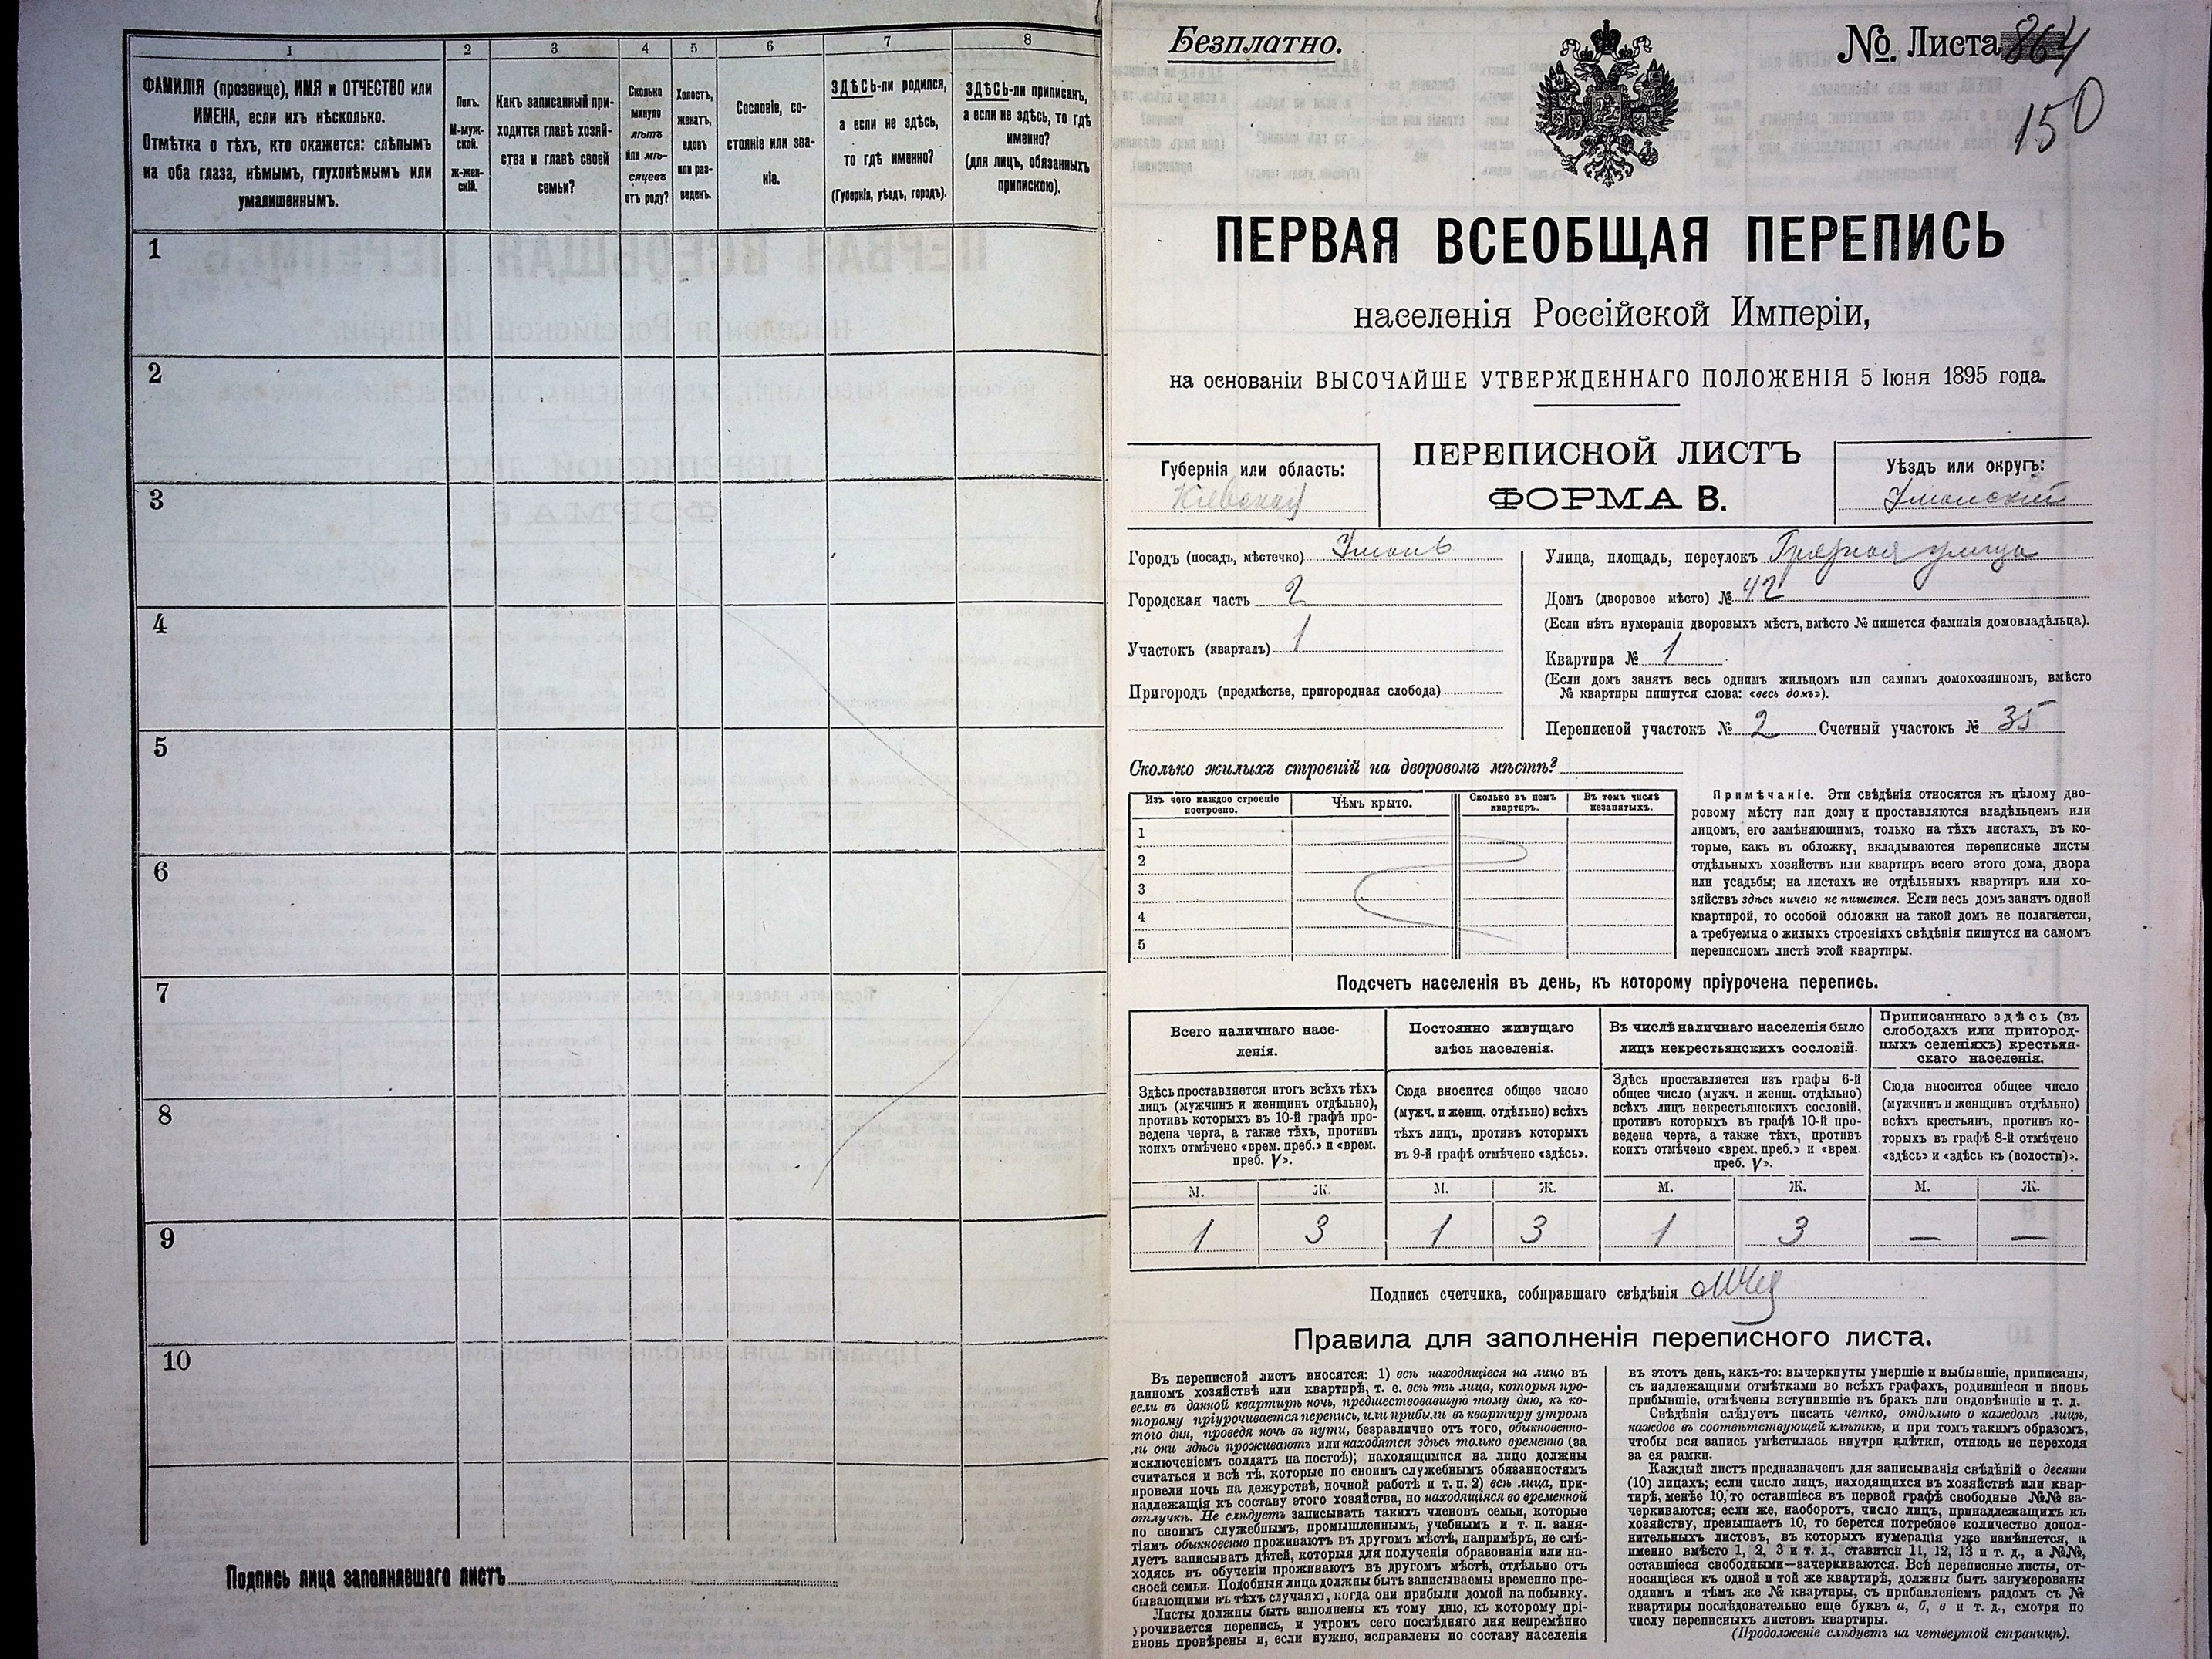 1 2 3 4 5 6 7 8
ФАМИЛІЯ (прозвище), ИМЯ и ОТЧЕСТВО или
ИМЕНА, если ихъ нѣсколько.
Отмѣтка о тѣхъ, кто окажется: слѣпымъ
на оба глаза, нѣмымъ, глухонѣмымъ или
умалишеннымъ.
Полъ.
М-муж-
ской.
Ж-жен-
скій.
Какъ записанный при-
ходится главѣ хозяй-
ства и главѣ своей
семьи?
Сколько
минуло
лѣтъ
или мѣ-
сяцевъ
отъ роду?
Холостъ,
женатъ,
вдовъ
или раз-
веденъ.
Сословіе, со-
стояніе или зва-
ніе.
ЗДѢСЬ-ли родился,
а если не здѣсь,
то гдѣ именно?
(Губернія, уѣздъ, городъ).
ЗДѢСЬ-ли приписанъ,
а если не здѣсь, то гдѣ
именно?
(для лицъ, обязанныхъ
припискою).
1
2
3
4
5
6
7
8
9
10
Подпись лица заполнявшаго листъ
Безплатно.
№. Листа 864
150
ПЕРВАЯ ВСЕОБЩАЯ ПЕРЕПИСЬ
населенія Россійской Имперіи,
на основаніи ВЫСОЧАЙШЕ УТВЕРЖДЕННАГО ПОЛОЖЕНІЯ 5 Іюня 1895 года.
Губернія или область:
Кіевская
ПЕРЕПИСНОЙ ЛИСТЪ
ФОРМА В.
Уѣздъ или округъ:
Уманскій
Городъ (посадъ, мѣстечко) Умань
Городская часть 2
Участокъ (кварталъ) 1
Пригородъ (предмѣстье, пригородная слобода)
Улица, площадь, переулокъ Грязная улица
Домъ (дворовое мѣсто) № 42
(Если нѣтъ нумераціи дворовыхъ мѣстъ, вмѣсто № пишется фамилія домовладѣльца).
Квартира № 1
(Если домъ занятъ весь однимъ жильцомъ или самимъ домохозяиномъ, вмѣсто
№ квартиры пишутся слова: «весь домъ»).
Переписной участокъ № 2 Счетный участокъ № 35
Сколько жилыхъ строеній на дворовомъ мѣстѣ?
Изъ чего каждое строеніе
построено.
Чѣмъ крыто.
Сколько въ немъ
квартиръ.
Въ томъ числѣ
незанятыхъ.
1
2
3
4
5
Примѣчаніе. Эти свѣдѣнія относятся къ цѣлому дво-
ровому мѣсту или дому и проставляются владѣльцемъ или
лицомъ, его замѣняющимъ, только на тѣхъ листахъ, въ ко-
торые, какъ въ обложку, вкладываются переписные листы
отдѣльныхъ хозяйствъ или квартиръ всего этого дома, двора
или усадьбы; на листахъ же отдѣльныхъ квартиръ или хо-
зяйствъ здѣсь ничего не пишется. Если весь домъ занятъ одной
квартирой, то особой обложки на такой домъ не полагается,
а требуемыя о жилыхъ строеніяхъ свѣдѣнія пишутся на самомъ
переписномъ листѣ этой квартиры.
Подсчетъ населенія въ день, къ которому пріурочена перепись.
Всего наличнаго насе-
ленія.
Постоянно живущаго
здѣсь населенія.
Въ числѣ наличнаго населенія было
лицъ некрестьянскихъ сословій.
Приписаннаго здѣсь (въ
слободахъ или пригород-
ныхъ селеніяхъ) крестьян-
скаго населенія.
Здѣсь проставляется итогъ всѣхъ тѣхъ
лицъ (мужчинъ и женщинъ отдѣльно),
противъ которыхъ въ 10-й графѣ про-
ведена черта, а также тѣхъ, противъ
коихъ отмѣчено «врем. преб.» и «врем.
преб. V».
Сюда вносится общее число
(мужч. и женщ. отдѣльно) всѣхъ
тѣхъ лицъ, противъ которыхъ
въ 9-й графѣ отмѣчено «здѣсь».
Здѣсь проставляется изъ графы 6-й
общее число (мужч. и женщ. отдѣльно)
всѣхъ лицъ некрестьянскихъ сословій,
противъ которыхъ въ графѣ 10-й про-
ведена черта, а также тѣхъ, противъ
коихъ отмѣчено «врем. преб.» и «врем.
преб. V».
Сюда вносится общее число
(мужчинъ и женщинъ отдѣльно)
всѣхъ крестьянъ, противъ ко-
торыхъ въ графѣ 8-й отмѣчено
«здѣсь» и «здѣсь къ (волости)».
М. Ж. М. Ж. М. Ж. М. Ж.
1 3 1 3 1 3 — —
Подпись счетчика, собиравшаго свѣдѣнія
Правила для заполненія переписного листа.
Въ переписной листъ вносятся: 1) всѣ находящіеся на лицо въ
данномъ хозяйствѣ или квартирѣ, т. е. всѣ тѣ лица, которыя про-
вели въ данной квартирѣ ночь, предшествовавшую тому дню, къ ко-
торому пріурочивается перепись, или прибыли въ квартиру утромъ
того дня, проведя ночь въ пути, безразлично отъ того, обыкновенно-
ли они здѣсь проживаютъ или находятся здѣсь только временно (за
исключеніемъ солдатъ на постоѣ); находящимися на лицо должны
считаться и всѣ тѣ, которые по своимъ служебнымъ обязанностямъ
провели ночь на дежурствѣ, ночной работѣ и т. п. 2) всѣ лица, при-
надлежащія къ составу этого хозяйства, но находящіяся во временной
отлучкѣ. Не слѣдуетъ записывать такихъ членовъ семьи, которые
по своимъ служебнымъ, промышленнымъ, учебнымъ и т. п. заня-
тіямъ обыкновенно проживаютъ въ другомъ мѣстѣ, напримѣръ, не слѣ-
дуетъ записывать дѣтей, которыя для полученія образованія или на-
ходясь въ обученіи проживаютъ въ другомъ мѣстѣ, отдѣльно отъ
своей семьи. Подобныя лица должны быть записываемы временно пре-
бывающими въ тѣхъ случаяхъ, когда они прибыли домой на побывку.
Листы должны быть заполнены къ тому дню, къ которому прі-
урочивается перепись, и утромъ сего послѣдняго дня непремѣнно
вновь провѣрены и, если нужно, исправлены по составу населенія
въ этотъ день, какъ-то: вычеркнуты умершіе и выбывшіе, приписаны,
съ надлежащими отмѣтками во всѣхъ графахъ, родившіеся и вновь
прибывшіе, отмѣчены вступившіе въ бракъ или овдовѣвшіе и т. д.
Свѣдѣнія слѣдуетъ писать четко, отдѣльно о каждомъ лицѣ,
каждое въ соотвѣтствующей клѣткѣ, и при томъ такимъ образомъ,
чтобы вся запись умѣстилась внутри клѣтки, отнюдь не переходя
за ея рамки.
Каждый листъ предназначенъ для записыванія свѣдѣній о десяти
(10) лицахъ; если число лицъ, находящихся въ хозяйствѣ или квар-
тирѣ, менѣе 10, то оставшіеся въ первой графѣ свободные №№ за-
черкиваются; если же, наоборотъ, число лицъ, принадлежащихъ къ
хозяйству, превышаетъ 10, то берется потребное количество допол-
нительныхъ листовъ, въ которыхъ нумерація уже измѣняется, а
именно вмѣсто 1, 2, 3 и т. д., ставится 11, 12, 13 и т. д., а №№,
оставшіеся свободными—зачеркиваются. Всѣ переписные листы, от-
носящіеся къ одной и той же квартирѣ, должны быть занумерованы
однимъ и тѣмъ же № квартиры, съ прибавленіемъ рядомъ съ №
квартиры послѣдовательно еще буквъ а, б, в и т. д., смотря по
числу переписныхъ листовъ квартиры.
(Продолженіе слѣдуетъ на четвертой страницѣ).